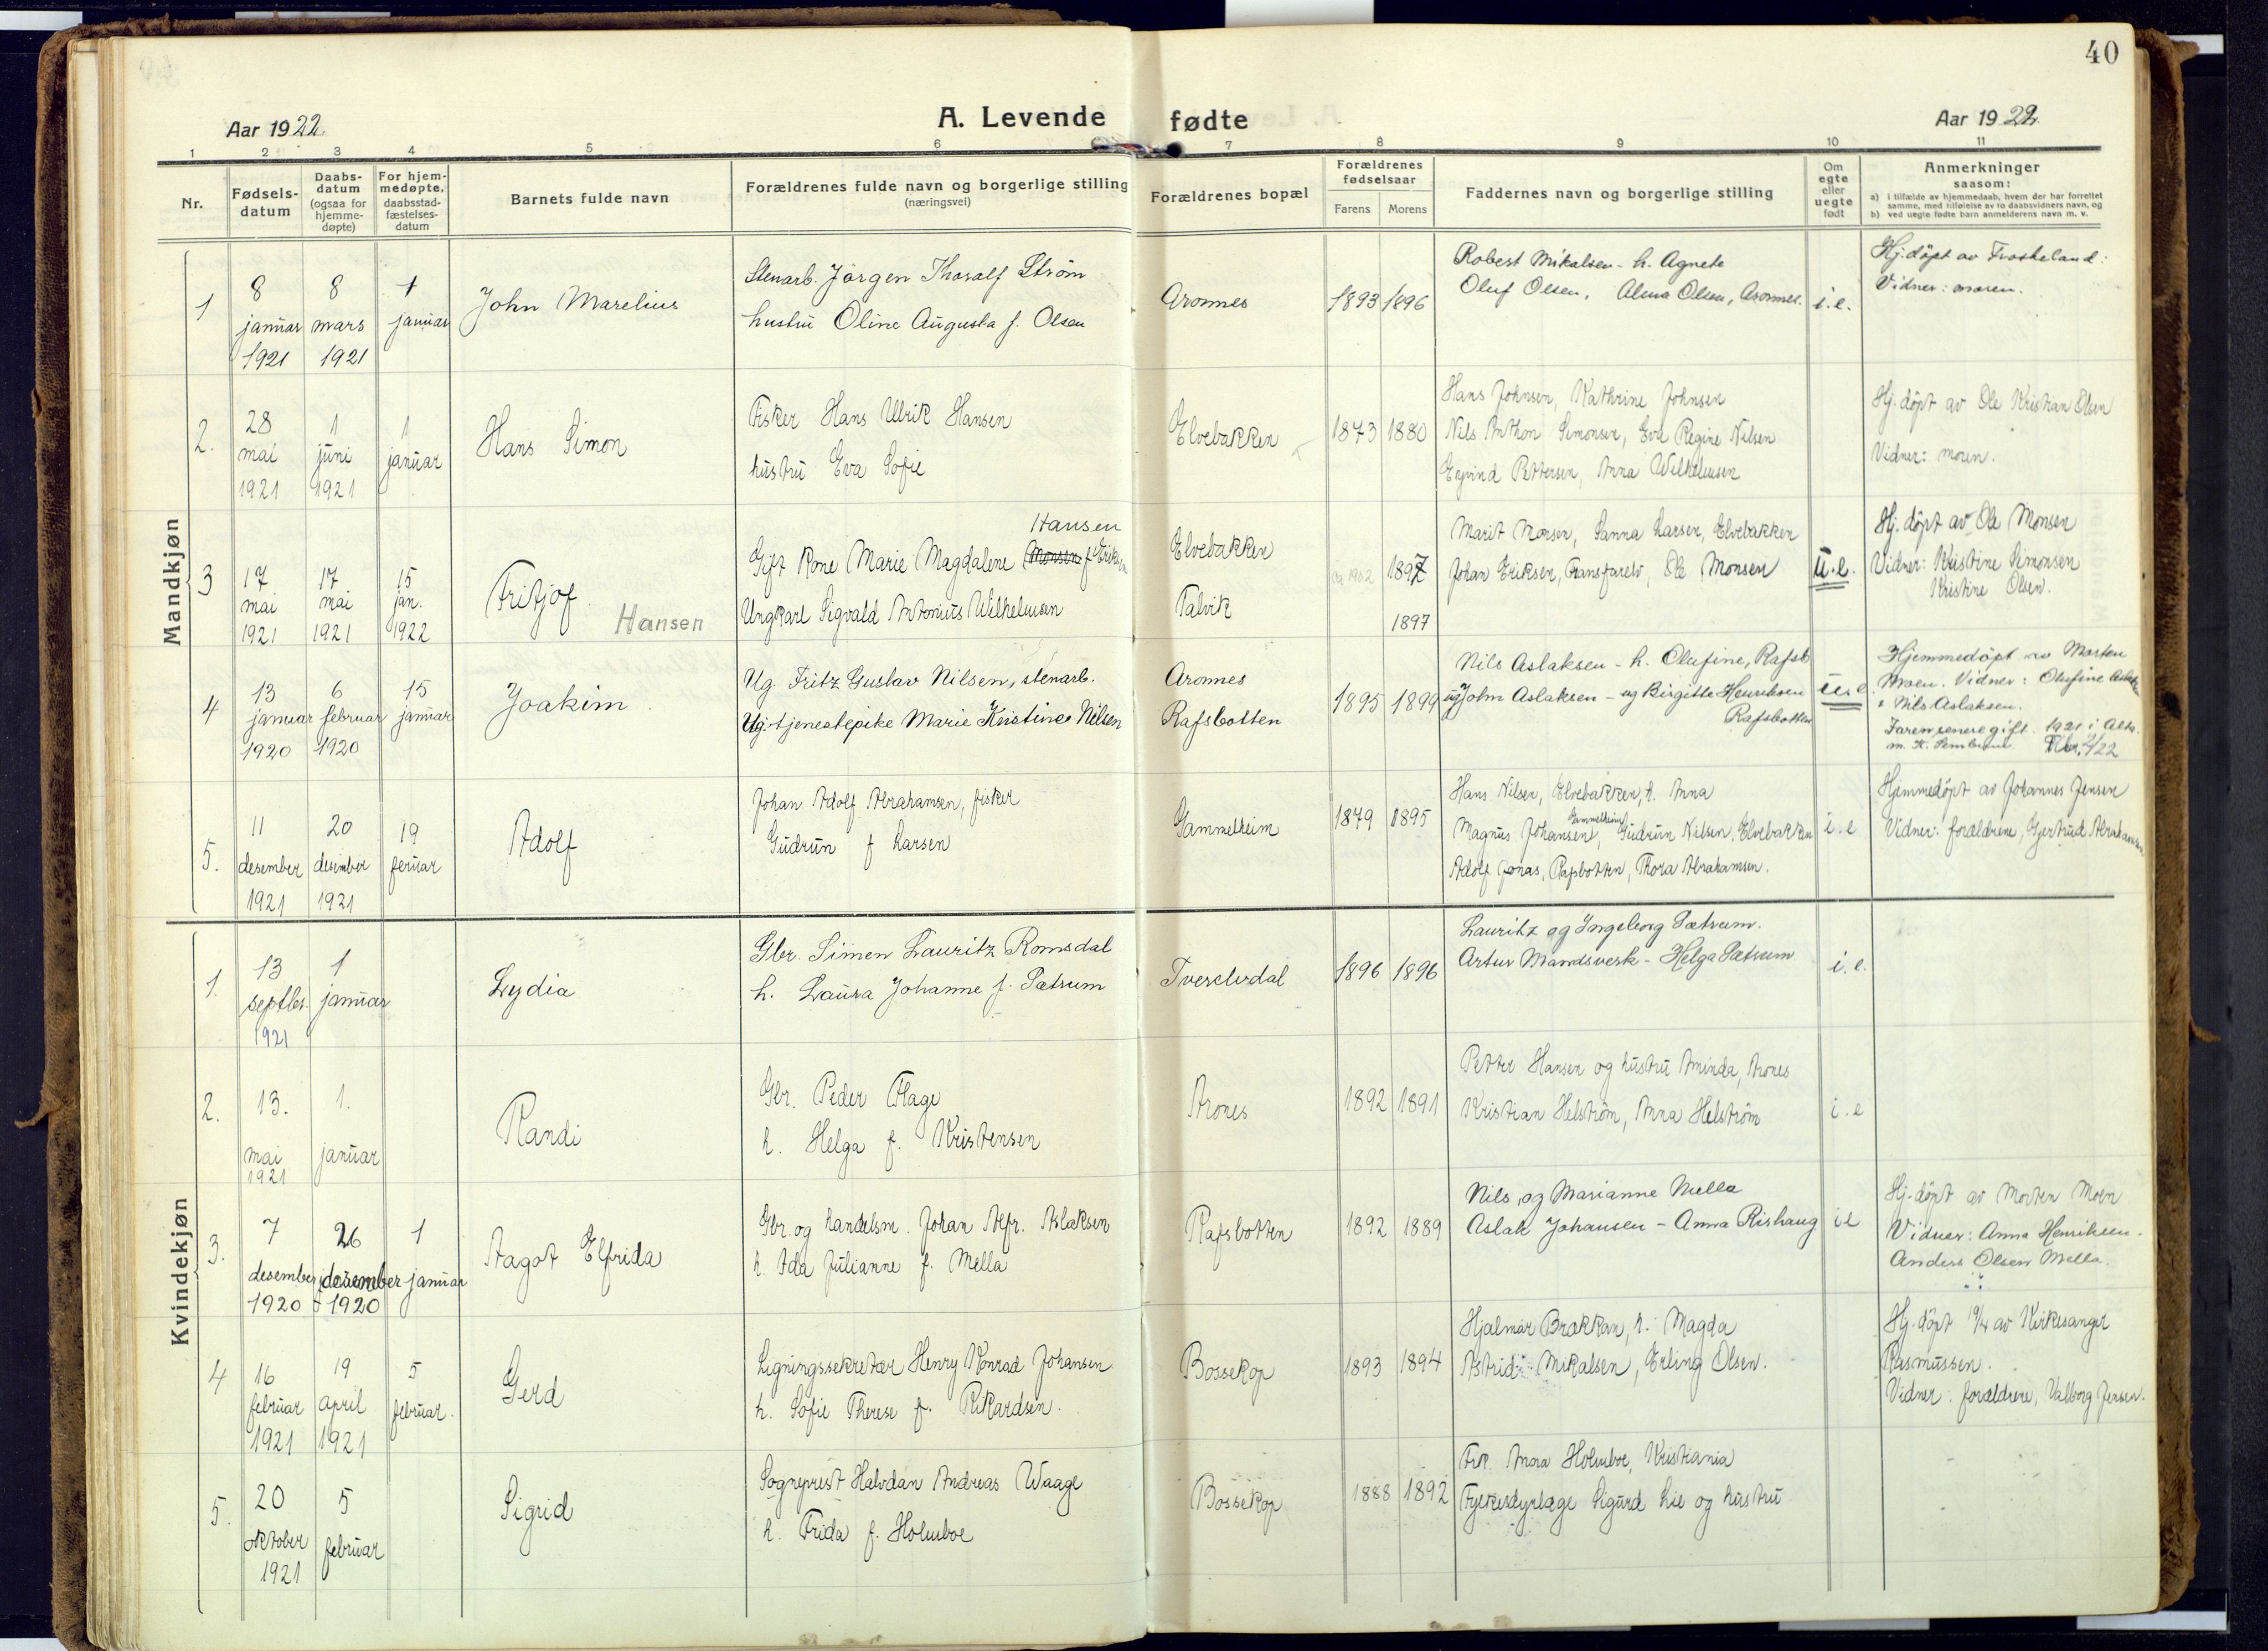 40
Aar 1922.
A. Levende fødte
Aar 1922.
1 2 3 4 5 6 7 8 9 10 11
Nr.
Fødsels-
datum
Daabs-
datum
(ogsaa for
hjemme-
døpte)
For hjem-
medøpte,
daabsstad-
fæstelses-
datum
Barnets fulde navn
Forældrenes fulde navn og borgerlige stilling
(næringsvei)
Forældrenes bopæl
Forældrenes
fødselsaar
Farens Morens
Faddernes navn og borgerlige stilling
Om
egte
eller
uegte
født
Anmerkninger
saasom:
a) i tilfælde av hjemmedaab, hvem der har forrettet
samme, med tilføielse av to daabsvidners navn, og
b) ved uegte fødte barn anmelderens navn m. v.
Mandkjøn
1
8
januar
1921
8
mars
1921
1
januar
John Marelius
Stenarb. Jørgen Thoralf Strøm
hustru Oline Augusta f. Olsen
Aronnes
1893 1896
Robert Mikalsen - h. Agnete
Oluf Olsen, Alma Olsen, Aronnes.
i.e.
Hj. døpt av Froskeland:
Vidner: moren.
2.
28
mai
1921
1
juni
1921
1
januar
Hans Simon
Fisker Hans Ulrik Hansen
hustru Eva Sofie
Elvebakken
1873 1880
Hans Johnsen, Kathrine Johnsen
Nils Anthon Simonsen, Eva Regine Nilsen
Eyvind Pettersen, Anna Wilhelmsen
Hj. døpt av Ole Kristian Olsen
Vidner: moren.
3
17
mai
1921
17
mai
1921
15
jan.
1922
Fritjof
Hansen
Hansen
Gift Kone Marie Magdalene Monsen f Eriksen
Ungkarl Sigvald Antonius Wilhelmsen
Elvebakken
Talvik
ca 1902 1897
1897
Marit Monsen, Sanna Larsen, Elvebakken
Johan Eriksen, Transfarelv, Ole Monsen
u.e.
Hj. døpt av Ole Monsen
Vidner: Kristine Simonsen
Kristine Olsen.
4
13
januar
1920
6
februar
1920
15
januar
Joakim
Ug. Fritz Gustav Nilsen, stenarb.
Ug. tjenestepike Marie Kristine Nilsen
Aronnes
Rafsbotten
1895 1899
Nils Aslaksen - h. Olufine, Rafsb
ug John Aslaksen - ug Birgitte Henriksen
Rafsbotten
u.e.
Hjemmedøpt av Morten
Moen. Vidner: Olufine
Nils Aslaksen.
Faren senere gift 1921 i Alta
5.
11
desember
1921
20
desember
1921
19
feruar
Adolf
Johan Adolf Abrahamsen, fisker
Gudrun f Larsen
Gammelheim
1879 1895
Hans Nilsen, Elvebakken, h. Anna
Gammelheim
Magnus Johansen, Gudrun Nilsen, Elvebakken
Adolf Jonas, Rafsbotten, Thora Abrahamsen.
i.e
Hjemmedøpt av Johannes Jensen
Vidner: forældrene, Gjertrud Abrahamsen
Kvindekjøn
1.
13
septbr.
1921
1
januar
Lydia
Gbr. Simen Lauritz Romsdal
h. Laura Johanne f. Sætrum
Tverelvdal
1896 1896
Lauritz og Ingeborg Sætrum.
Artur Mandsverk - Helga Sætrum
i.e.
2.
13.
mai
1921
1.
januar
Randi
Gbr. Peder Flage
h. Helga f. Kristensen
Arones
1892 1891
Petter Hansen og hustru Aminda, Arones
Kristian Helstrøm, Anna Helstrøm
i.e
3.
7
desember
1920
26
desember
1920
1
januar
Aagot Elfrida
Gbr. og handelsm. Johan Alfr. Aslaksen
h. Ada Julianne f. Mella
Rafsbotten
1892 1889
Nils og Marianne Mella
Aslak Johansen - Anna Rishaug
i e
Hj. døpt av Morten Moen
Vidner: Anna Henriksen.
Anders Olsen Mella.
4
16
februar
1921
19
april
1921
5
februar.
Gerd
Ligningssekretær Henry Konrad Johansen
h. Sofie Therese f. Rikardsen.
Bossekop
1893 1894
Hjalmar Brækkan, h. Magda
Astrid Mikalsen, Erling Olsen.
Hj. døpt 19/4 av Kirkesanger
Rasmussen.
Vidner: forældrene, Valborg Jensen.
5.
20
oktober
1921
5
februar
Sigrid
Sogneprest Halvdan Andreas Waage
h. Frida f. Holmboe
Bossekop
1888 1892
Frk. Anna Holmboe, Kristiania
Fylkesdyrlæge Sigurd Lie og hustru